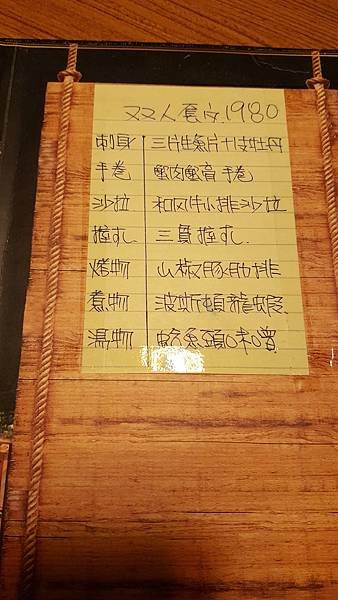 双人套餐1980
刺身 三片生魚片+牡丹
手卷 蟹肉蟹膏手卷
沙拉 和风牛小排沙拉
握すし 三貫握すし
烤物 山椒豚肋排
煮物 波斯頓龍蝦
湯物 鮭魚頭味噌